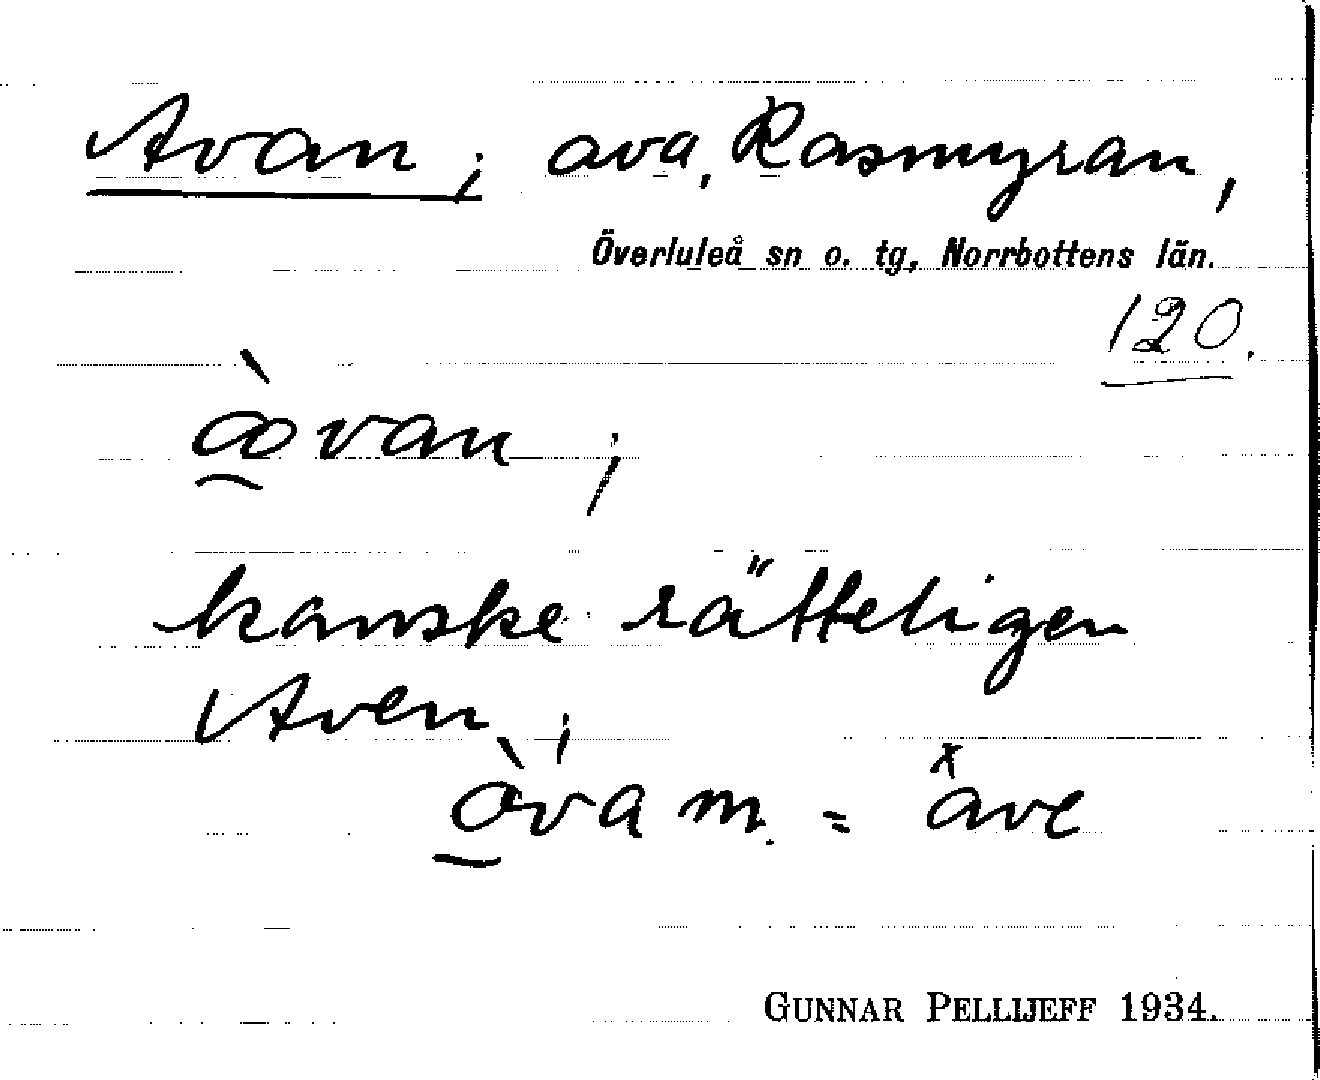 Avan; ava, Rasmyran,
Överluleå sn o. tg, Norrbottens län.
120.
òvan;
kanske rätteligen
Aven;
òva m. = ave
GUNNAR PELLIJEFF 1934.